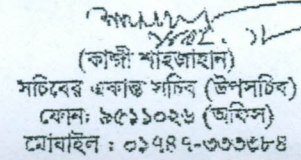 (কাজী শাহজাহান)
সচিবের একান্ত সচিব (উপসচিব)
ফোন: ৯৫১১০২৬ (অফিস)
মোবাইল : ০১৭৪৭-৩৩৩৫৮৪